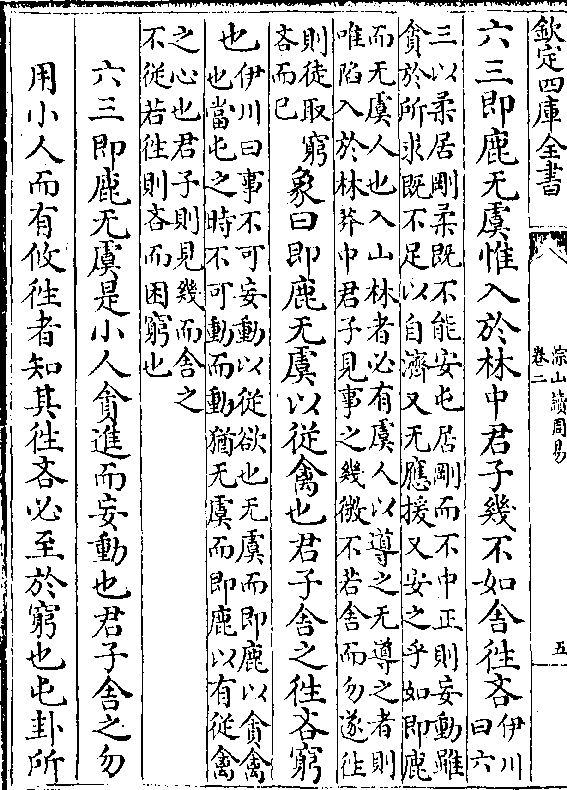 欽定四庫全書
淙山讀周易
卷二
五
六三即鹿无虞惟入於林中君子幾不如舍徃吝伊川
曰六
三以柔居剛柔既不能安屯居剛而不中正則妄動雖
貪於所求既不足以自濟又无應援又安之乎如即鹿
而无虞人也入山林者必有虞人以導之无導之者則
唯陷入於林莽中君子見事之幾微不若舍而勿遂徃
則徒取窮
吝而已
象曰即鹿无虞以從禽也君子舍之徃吝窮
也
伊川曰事不可妄動以從欲也无虞而即鹿以貪禽
也當屯之時不可動而動猶无虞而即鹿以有從禽
之心也君子則見幾而舍之
不從若徃則吝而困窮也
六三即鹿无虞是小人貪進而妄動也君子舍之勿
用小人而有攸徃者知其徃吝必至於窮也屯卦所